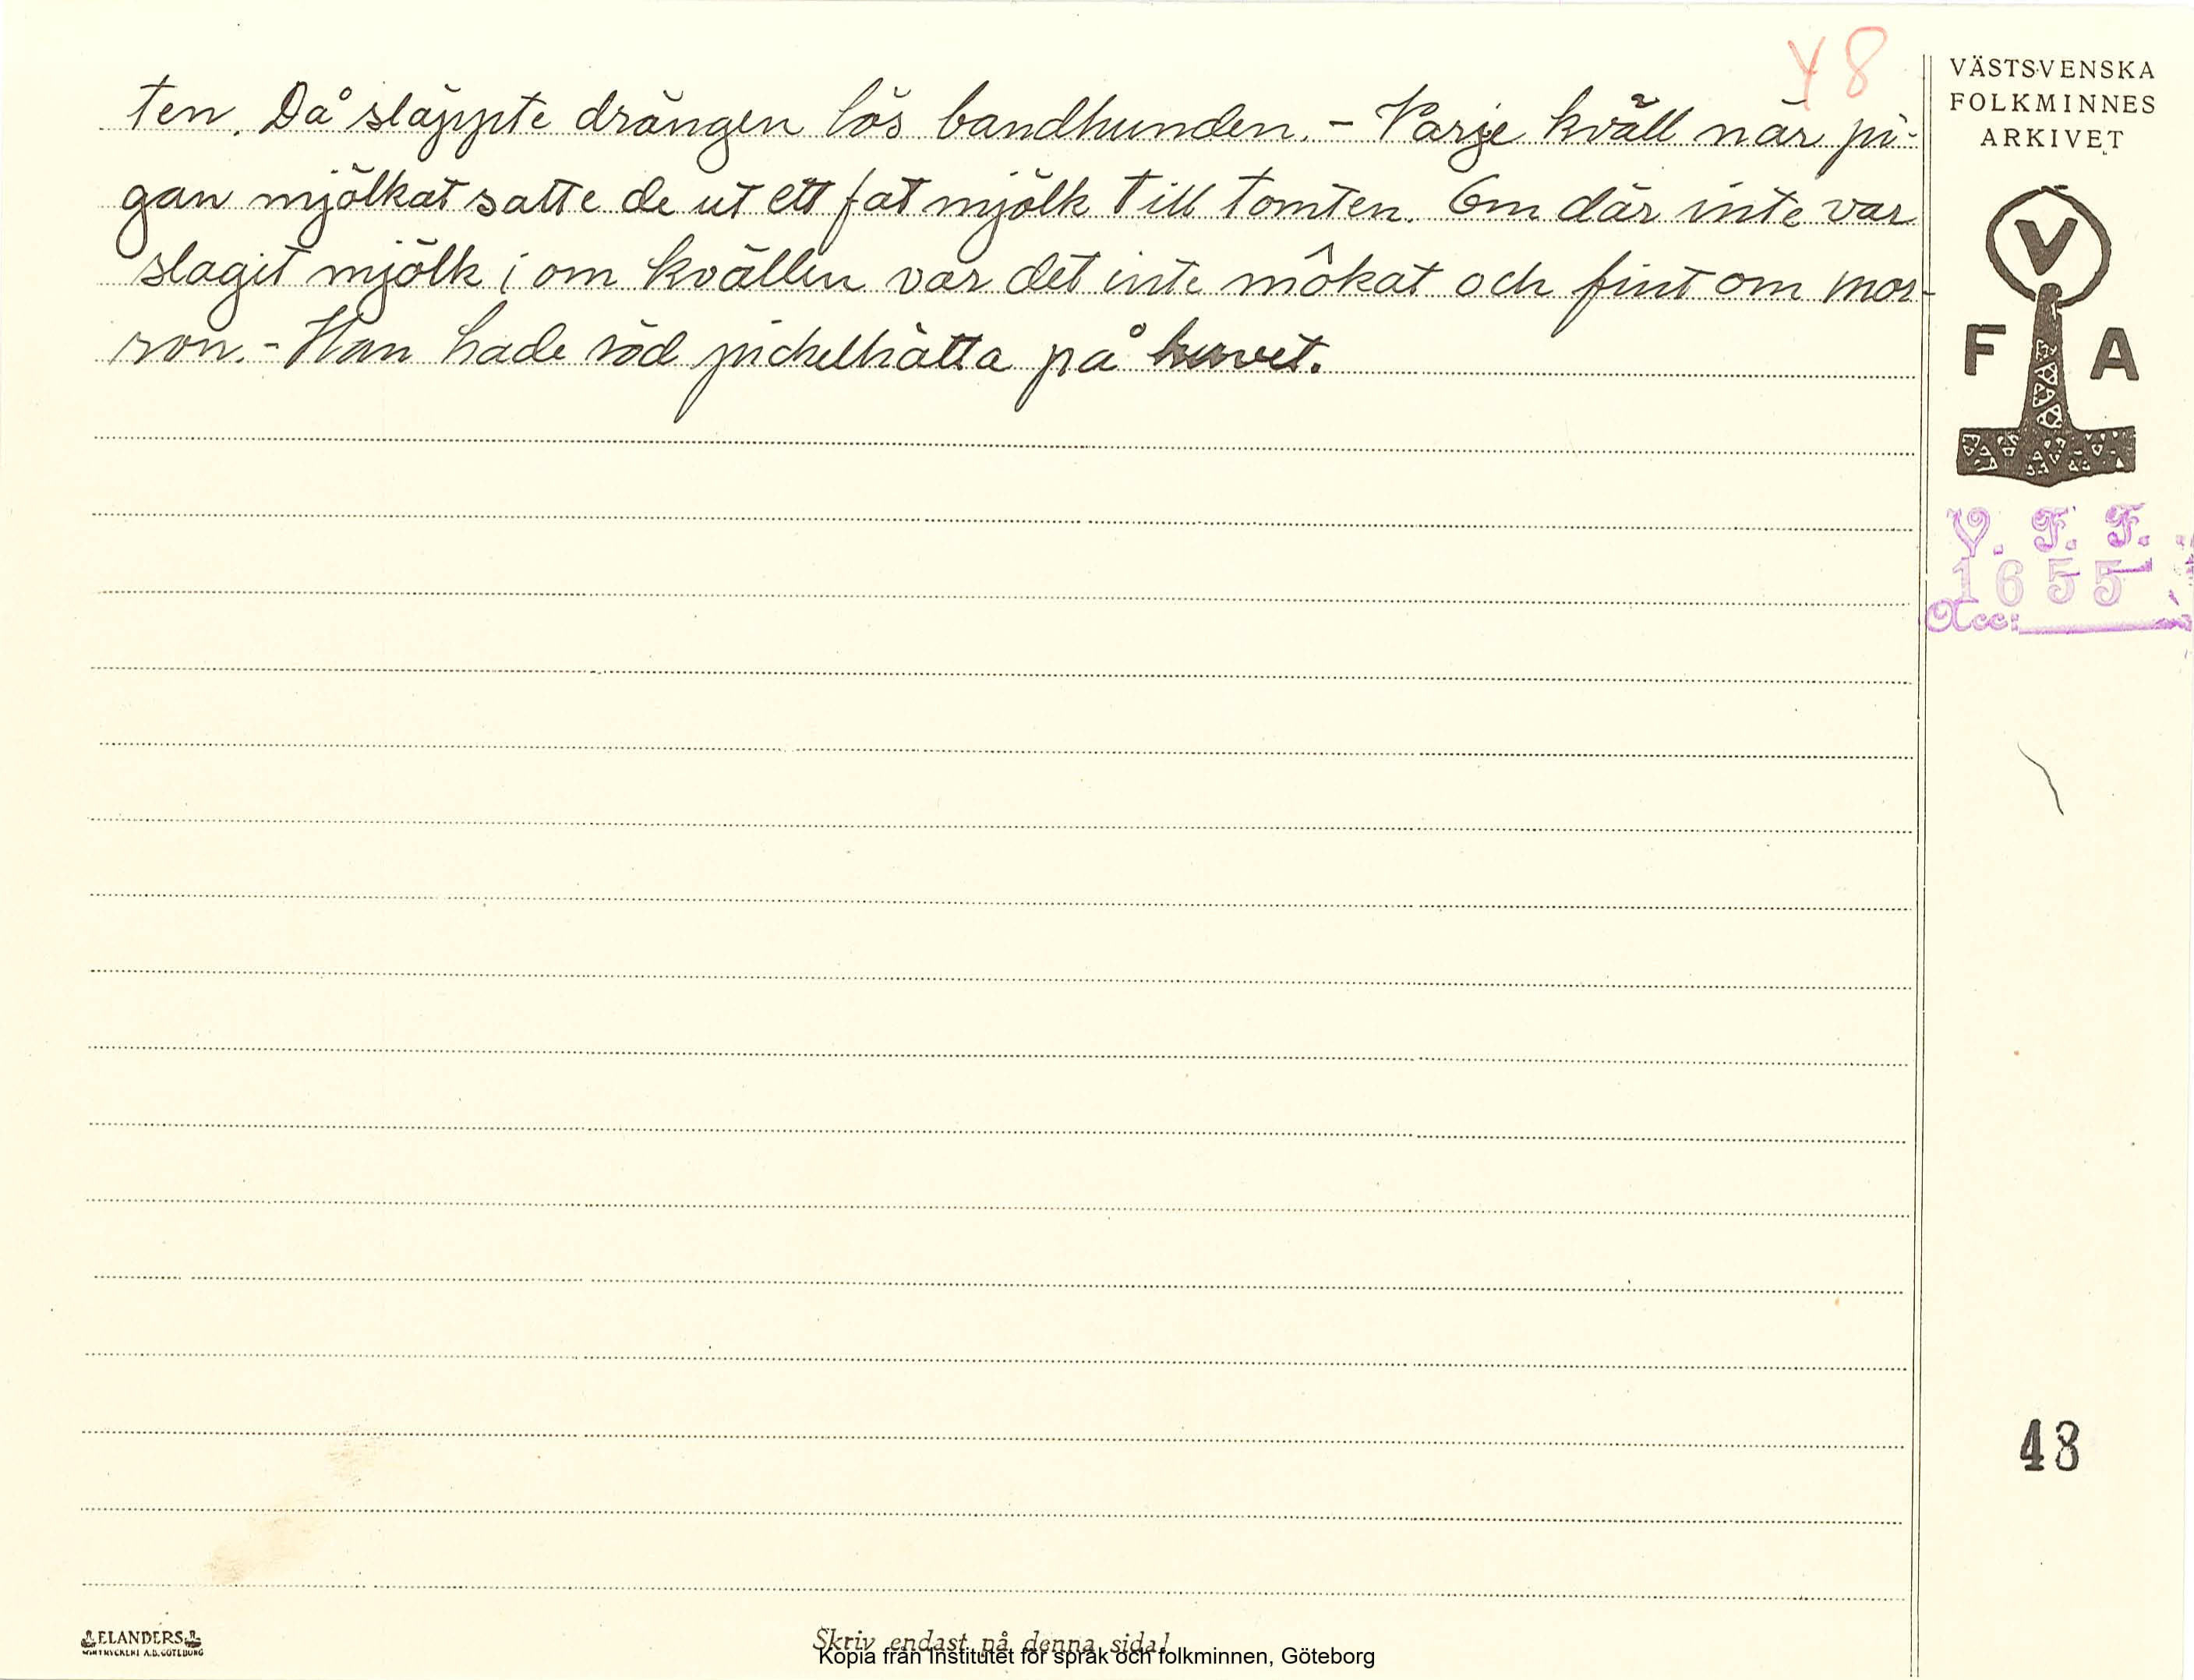 48
ten. Då släppte drängen lös bandhunden. - Varje kväll när pi-
gan mjölkat satte de ut ett fat mjölk till tomten. Om där inte var
slagit mjölk i om kvällen var det inte môkat och fint om mor-
ron. - Han hade röd pickelhätta på huvet.
VÄSTSVENSKA
FOLKMINNES
ARKIVET
V
F A
V. F. F.
1655
Acc:
48
ELANDERS
Skriv endast på denna sida!
Kopia från Institutet för språk och folkminnen, Göteborg